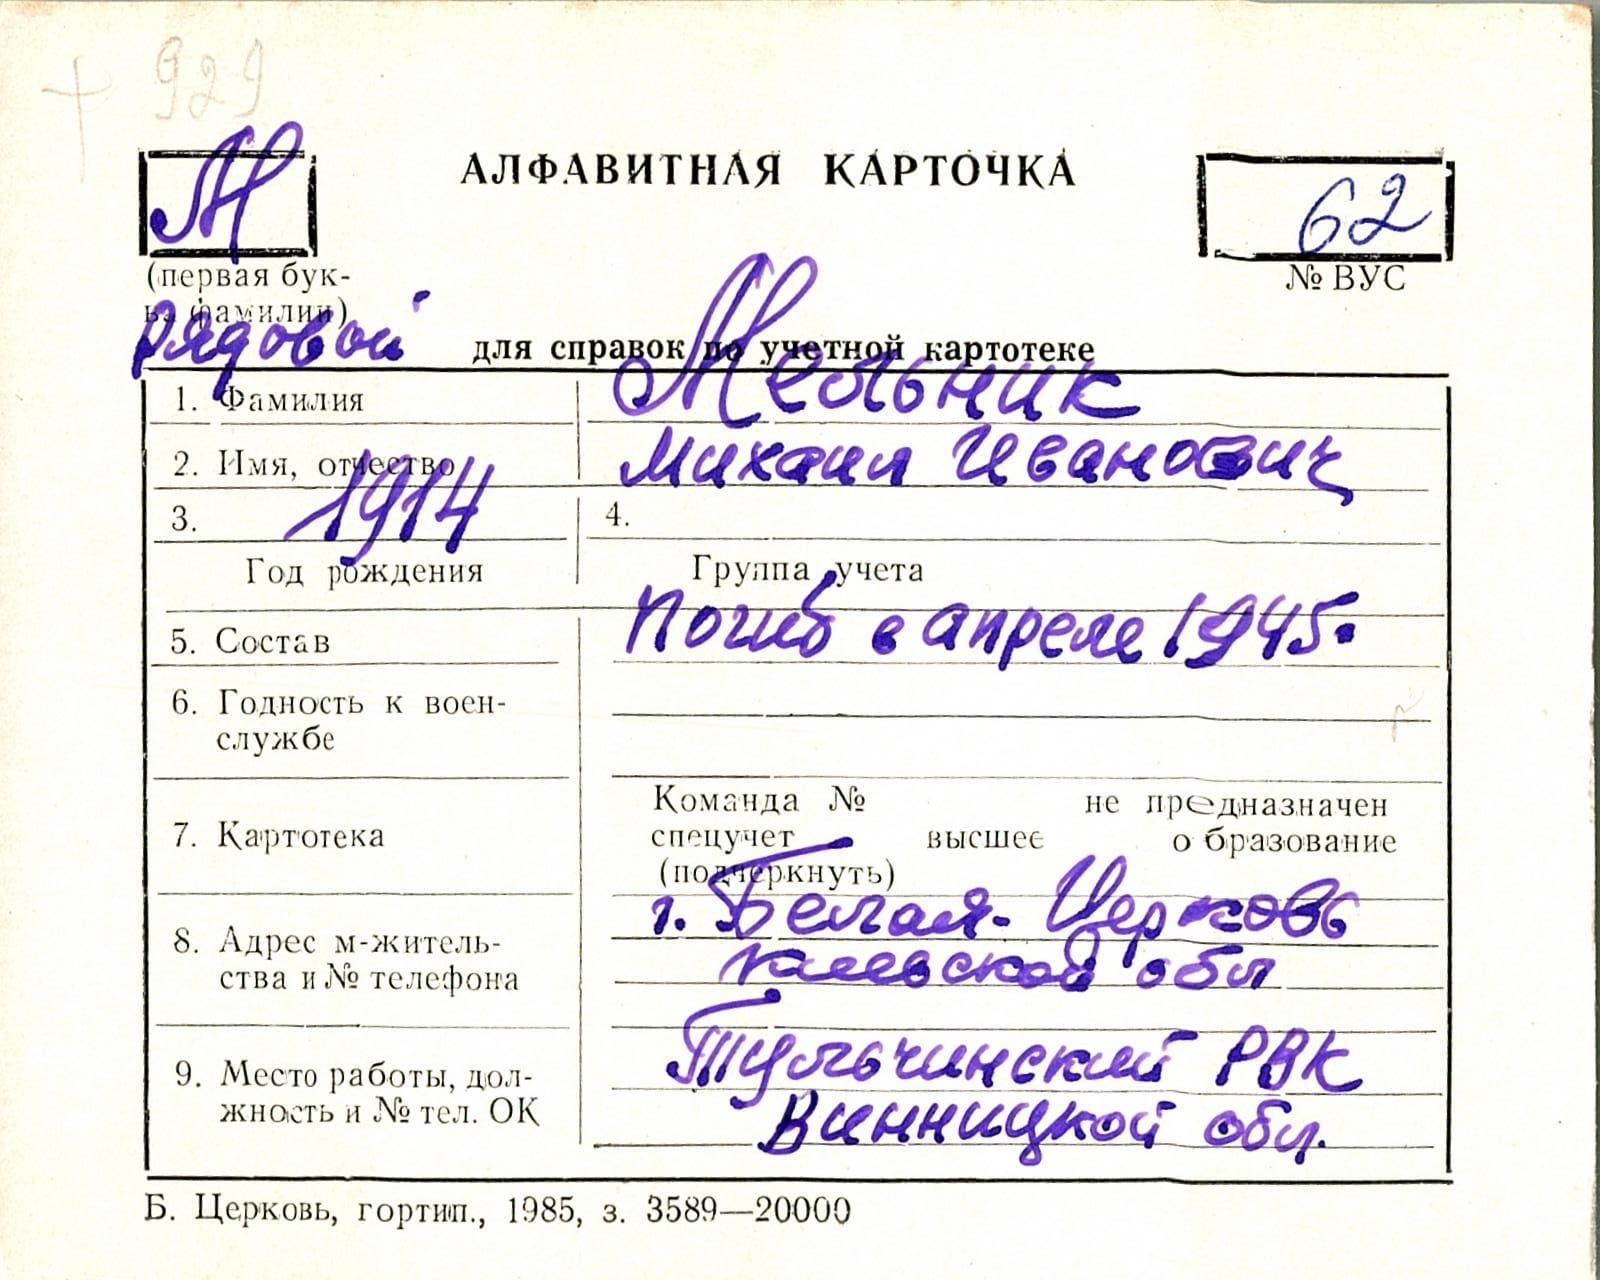 + 929
М
АЛФАВИТНАЯ КАРТОЧКА
62
(первая бук-
ва фамилии)
№ ВУС
Рядовой
для справок по учетной картотеке
1. Фамилия Мельник
2. Имя, отчество Михаил Иванович
3. 1914 4.
Год рождения Группа учета
5. Состав Погиб в апреле 1945.
6. Годность к воен-
службе
7. Картотека
Команда № не предназначен
спецучет высшее образование
(подчеркнуть)
8. Адрес м-житель-
ства и № телефона
г. Белая-Церковь
Киевской обл
9. Место работы, дол-
жность и № тел. ОК
Тульчинский РВК
Винницкой обл.
Б. Церковь, гортип., 1985, з. 3589—20000